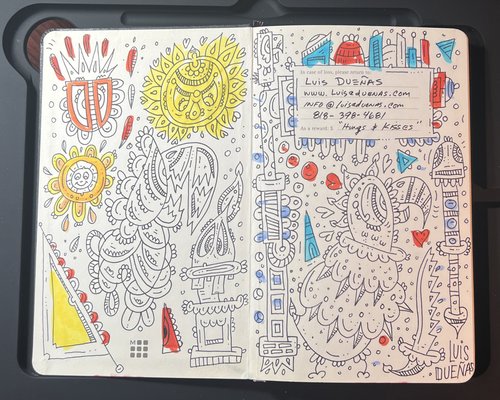 In case of loss, please return to:
LUIS DUEÑAS
WWW.LUISDUENAS.COM
INFO@LUISDUENAS.COM
818-398-4681
As a reward: $ "HUGS & KISSES"
M
LUIS
DUEÑAS